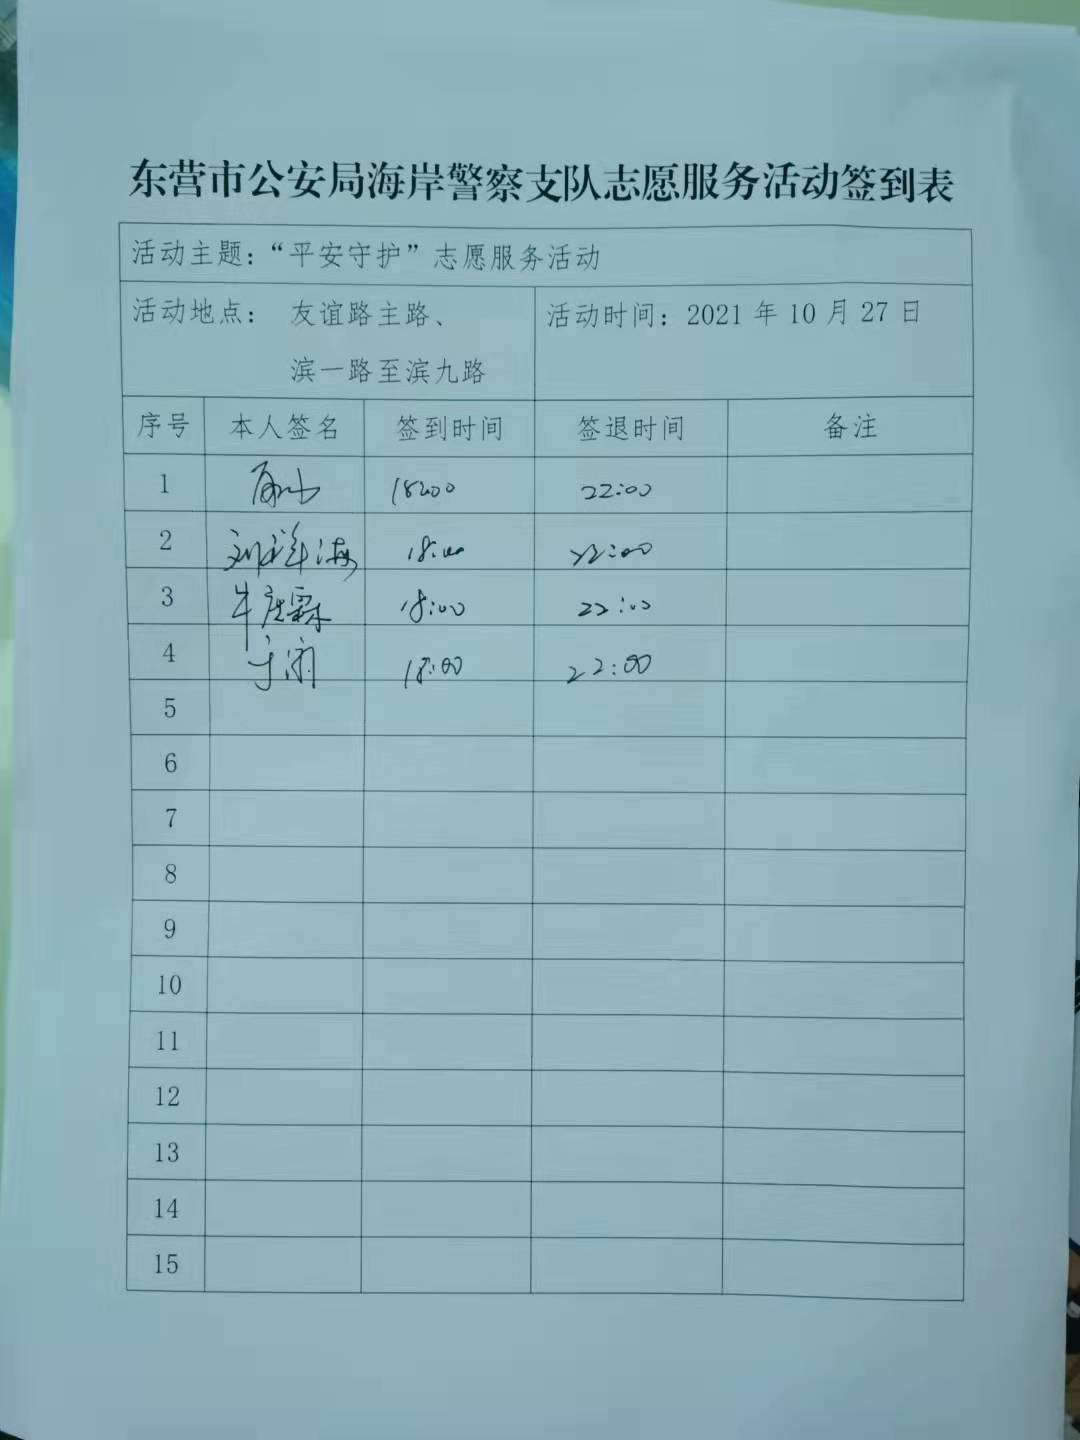 东营市公安局海岸警察支队志愿服务活动签到表
活动主题：“平安守护”志愿服务活动
活动地点： 友谊路主路、
滨一路至滨九路
活动时间：2021 年 10 月 27 日
序号 本人签名 签到时间 签退时间 备注
1 18:00 22:00
2 刘祥海 18:00 22:00
3 牛庆霖 18:00 22:00
4 18:00 22:00
5
6
7
8
9
10
11
12
13
14
15